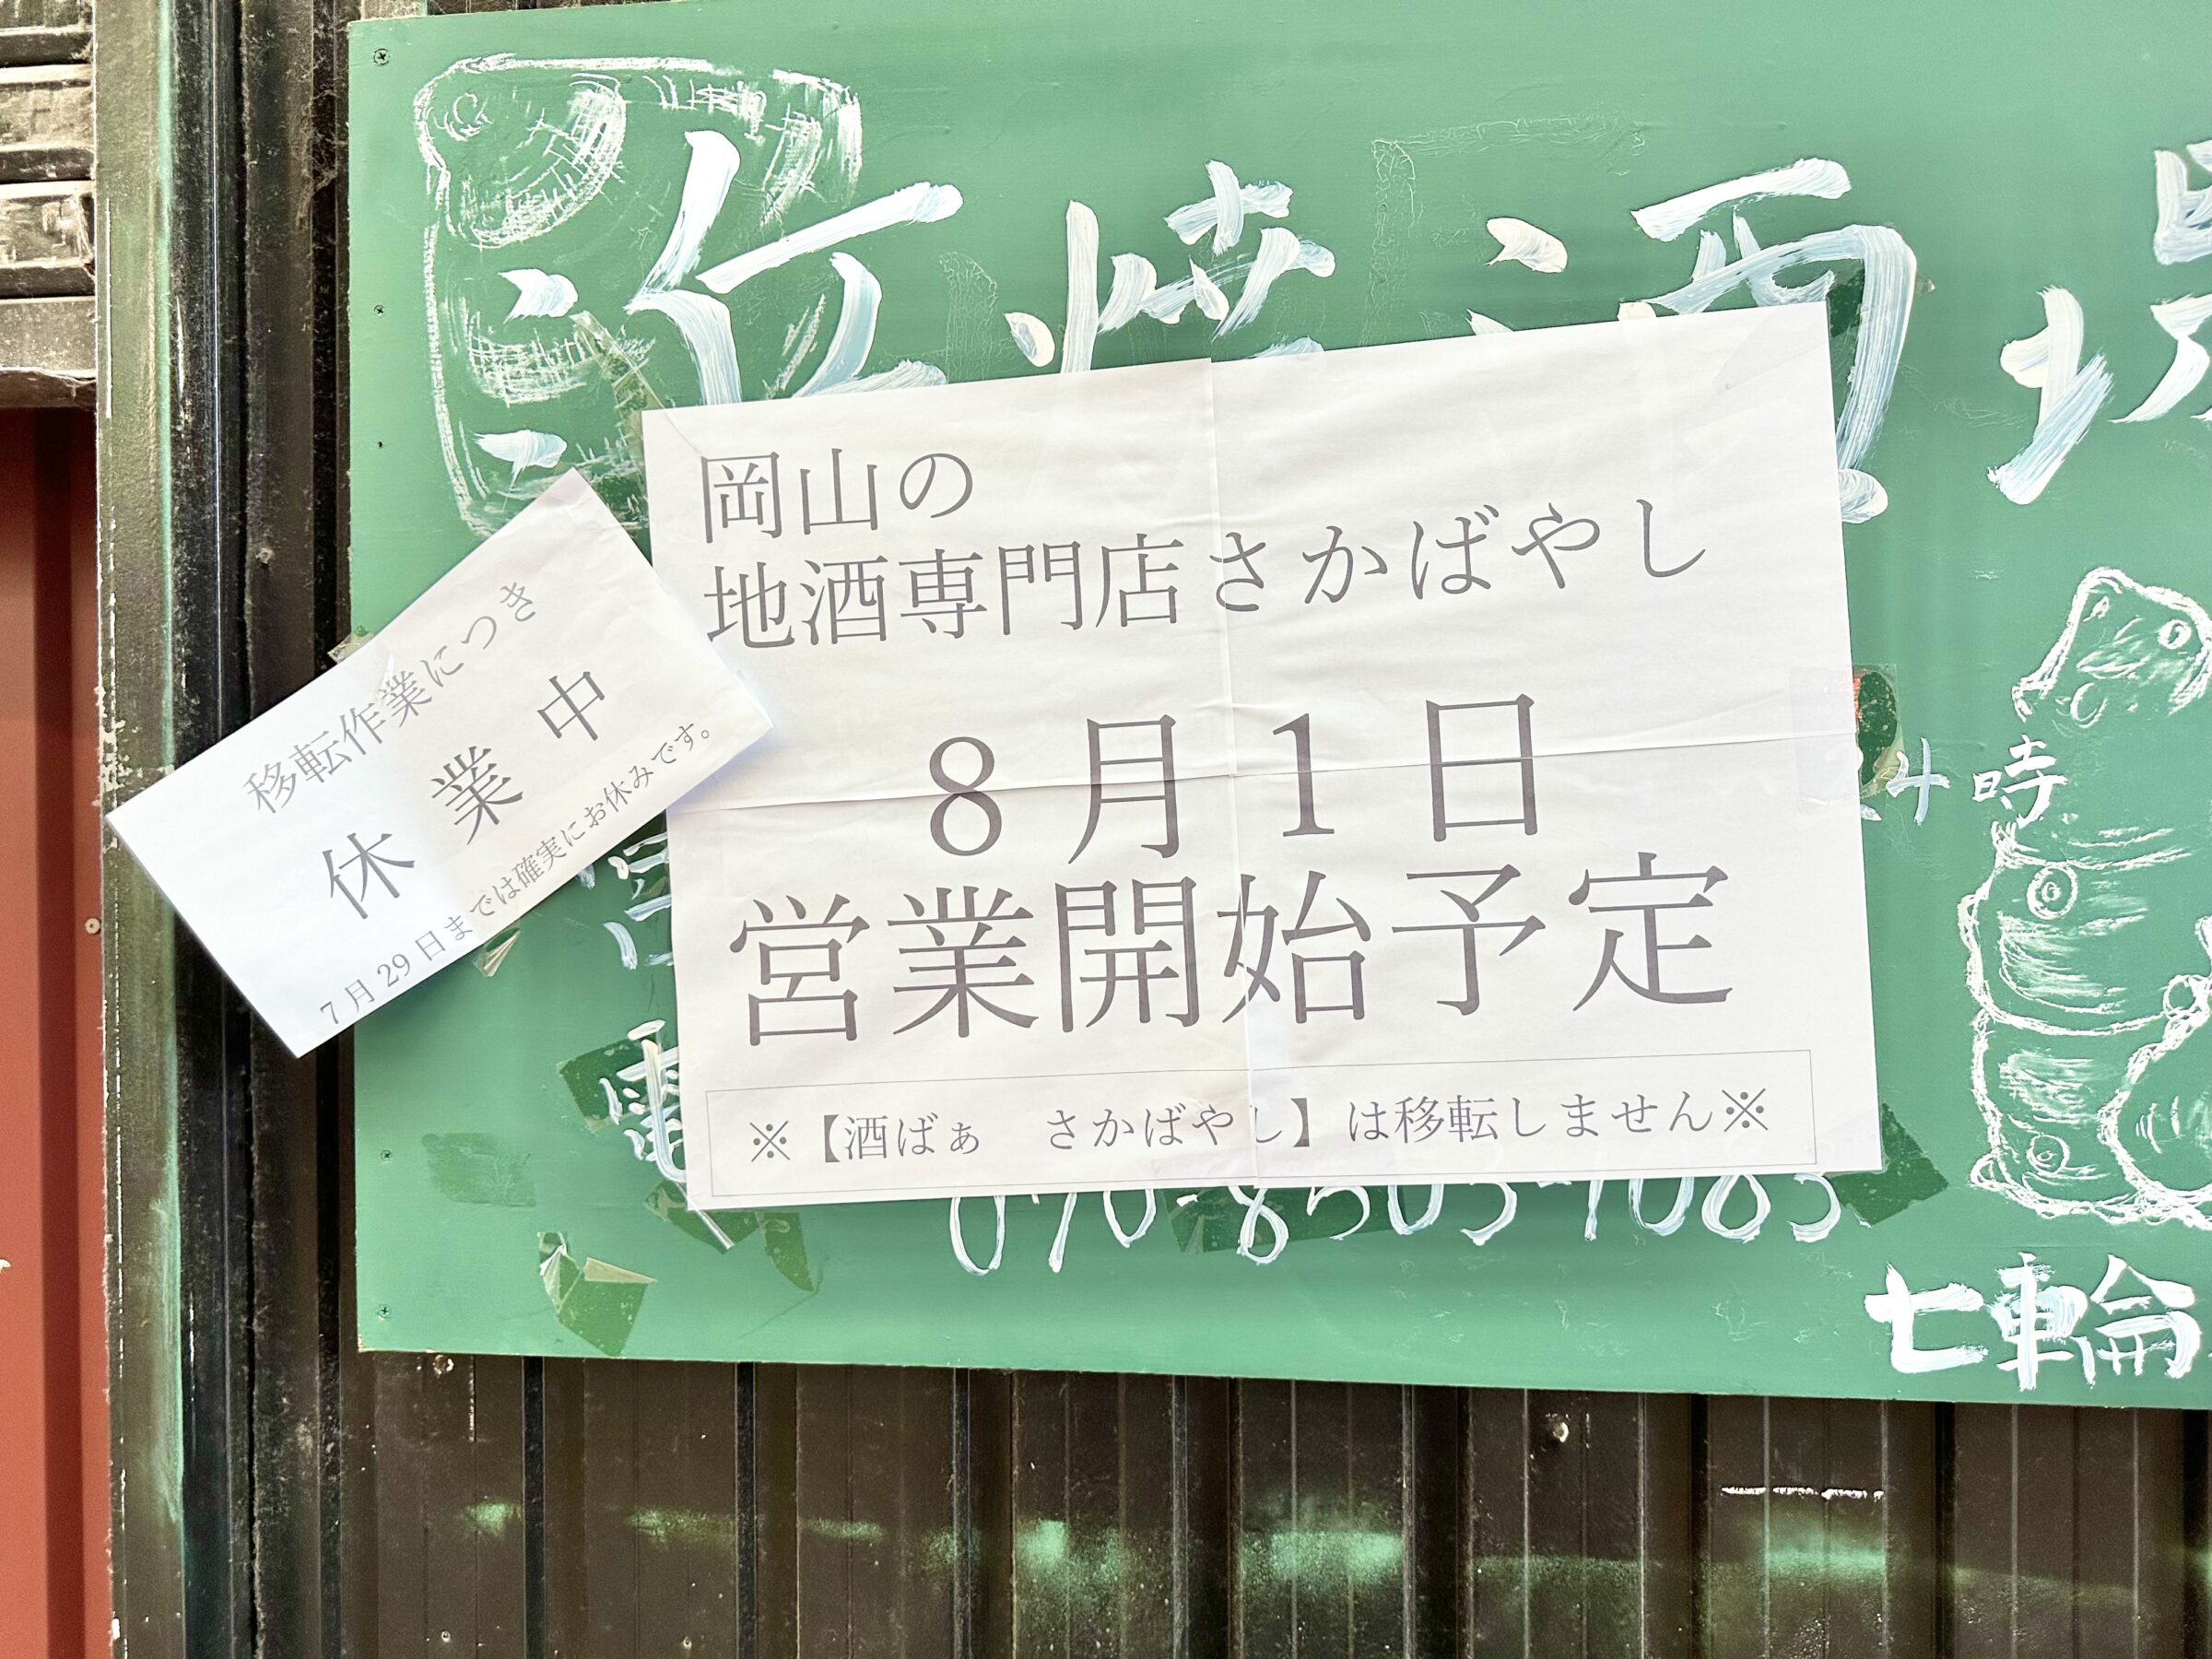 岡山の
地酒専門店さかばやし
8月1日
営業開始予定
※【酒ばぁ　さかばやし】は移転しません※
移転作業につき
休業中
7月29日までは確実にお休みです。
時
七輪